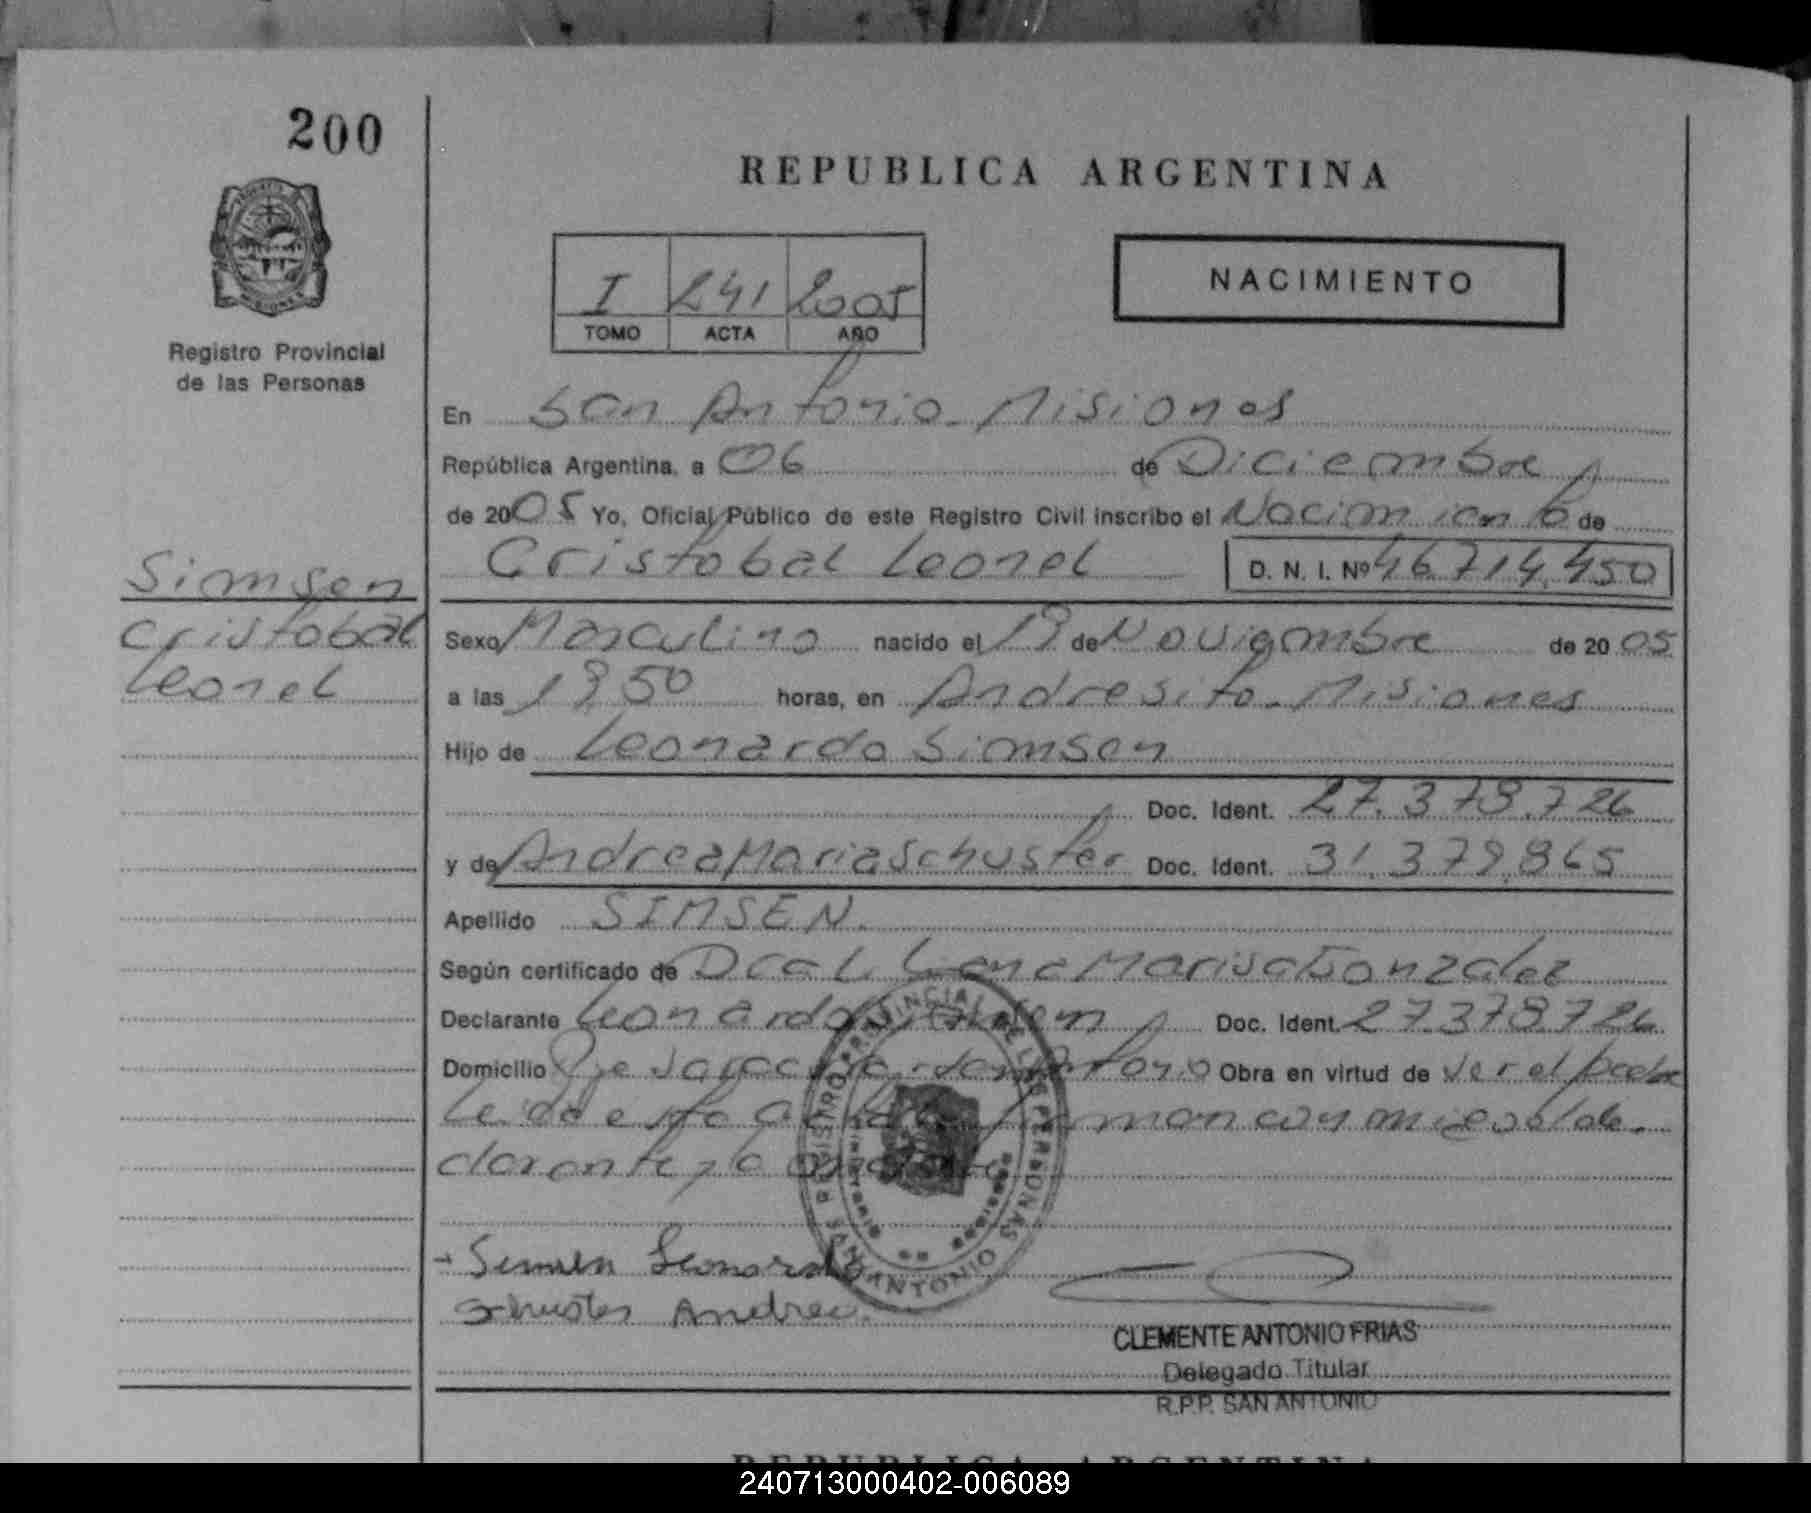 200
REPUBLICA ARGENTINA
I 241 2005
TOMO ACTA AÑO
NACIMIENTO
Registro Provincial
de las Personas
En San Antonio - Misiones
República Argentina, a 06 de Diciembre
de 2005 Yo, Oficial Público de este Registro Civil inscribo el Nacimiento de
Cristobal Leonel D. N. I. Nº 46.714.450
Simsen
Cristobal
Leonel
Sexo Masculino nacido el 19 de Noviembre de 2005
a las 19 50 horas, en Andresito - Misiones
Hijo de Leonardo Simsen
Doc. Ident. 27.378.726
y de Andrea Maria Schuster Doc. Ident. 31.379.865
Apellido SIMSEN.
Según certificado de Dra Liliana Marisa Gonzalez
Declarante Leonardo Simsen Doc. Ident. 27.378.726
Domicilio San Antonio Obra en virtud de ser el padre
Leida esta acta firman conmigo el de-
clarante y la
Simsen Leonardo
Schuster Andrea.
REGISTRO PROVINCIAL DE LAS PERSONAS
SAN ANTONIO
CLEMENTE ANTONIO FRIAS
Delegado Titular
R.P.P. SAN ANTONIO
REPUBLICA ARGENTINA
240713000402-006089